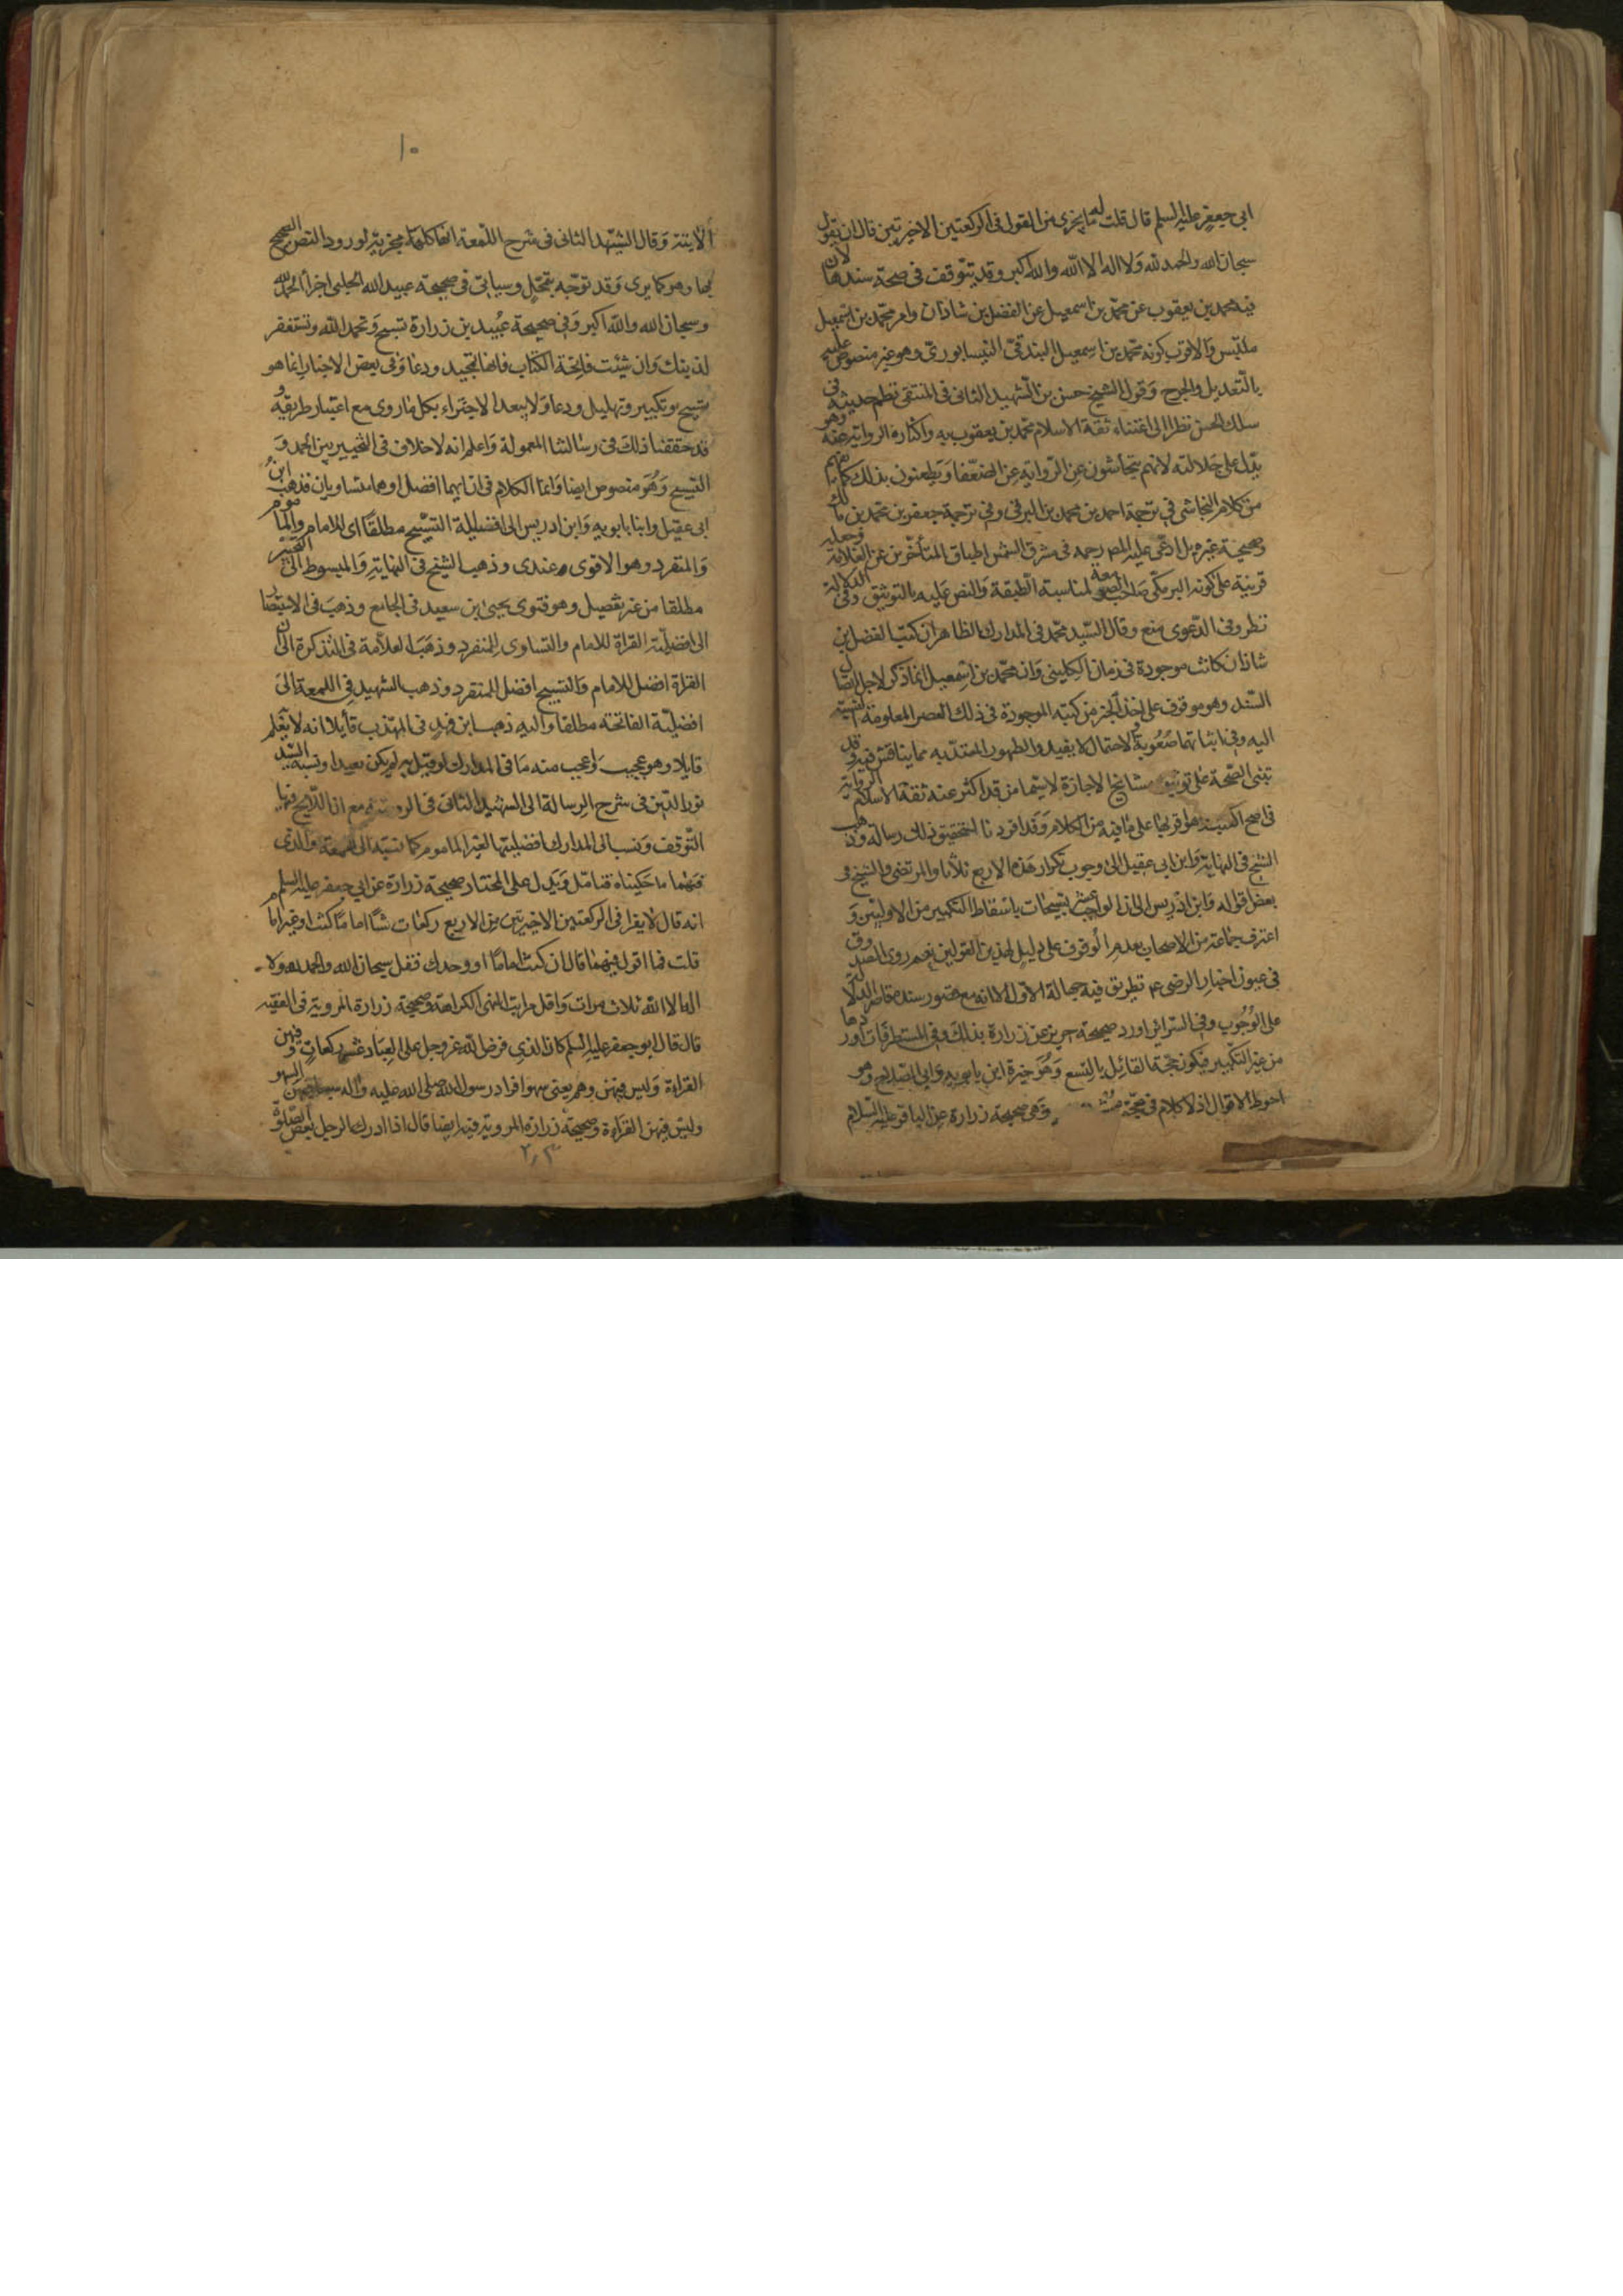 ابى جعفر عليه السلم قال قلت له ما يجزى من القول فى الركعتين الاخيرتين قال ان تقول
سبحان الله والحمد لله ولا اله الا الله والله اكبر وقد يتوقف فى صحة سندها لان
فيه محمد بن يعقوب عن محمد بن اسمعيل عن الفضل بن شاذان وامر محمد بن اسمعيل
ملتبس والاقرب كونه محمد بن اسمعيل البندقى النيسابورى وهو غير منصوص عليه
بالتعديل والجرح وقول الشيخ حسن بن الشهيد الثانى فى المنتقى نظم حديثه فى
سلك الحسن نظرا الى اعتناء ثقة الاسلام محمد بن يعقوب به واكثاره الرواية عنه وهو
يدل على جلالته لانهم يتحاشون عن الرواية عن الضعفا ويطعنون بذلك كما يفهم
من كلام النجاشى فى ترجمة احمد بن محمد بن البرقى وفى ترجمة جعفر بن محمد بن مالك
وصحيحة غيره بل ادعى عليه المص رحمه فى مشرق الشمس اطباق المتأخرين عن العلامة وجعله
قرينة على كونه البرمكى صاحب الصومعة لمناسبة الطبقة والنص عليه بالتوثيق وفى الدلالة
نظر وفى الدعوى منع وقال السيد محمد فى المدارك الظاهر ان كتب الفضل بن
شاذان كانت موجودة فى زمان الكلينى وان محمد بن اسمعيل انما ذكر لاجل اتصال
السند وهو موقوف على اخذ الخبر من كتبه الموجودة فى ذلك العصر المعلومة النسبة
اليه وفى اثباتهما صعوبة والاحتمال لا يفيد والظهور المعتد به مما يناقش فيه وقد
تبنى الصحة على توثيق مشائخ الاجازة لا سيما من قد اكثر عنه ثقة الاسلام الرواية
فى اصح الكتب هو اقربها على ما فيه من الكلام وقد افردنا لتحقيق ذلك رسالة وذهب
الشيخ فى النهاية وابن ابى عقيل الى وجوب تكرار هذه الاربع ثلاثا والمرتضى والشيخ فى
بعض اقواله وابن ادريس الى ان الواجب عشر تسبيحات باسقاط التكبير من الاوليين و
اعترف جماعة من الاصحاب بعدم الوقوف على دليل لهذين القولين نعم روى الصدوق
فى عيون اخبار الرضى ع تطريق فيه جهالة الاول الا انه مع قصور سنده قاصر الدلالة
على الوجوب وفى السرائر اورد صحيحة حريز عن زرارة بذلك وفى المستطرفات اوردها
من غير التكبير فيكون حجة القائل بالتسع وهو خيرة ابن بابويه وابى الصلاح وهو
احوط الاقوال اذ لا كلام فى صحة وهى صحيحة زرارة عن الباقر عليه السلام
١٠
الآيتة وقال الشهيد الثانى فى شرح اللمعة انها كلها مجزية لورود النص الصحيح
بها وهو كما يرى وقد توجه بتمحل وسياتى فى صحيحة عبيد الله الحلبى اجزأ الحمد لله
وسبحان الله والله اكبر وفى صحيحة عبيد بن زرارة تسبح وتحمد الله وتستغفر
لذنبك وان شئت فاتحة الكتاب فانها تمجيد ودعا وفى بعض الاخبار انما هو
تسبيح وتكبير وتهليل ودعا ولا يبعد الاجتزاء بكل ما روى مع اعتبار طريقه و
قد حققنا ذلك فى رسالتنا المعمولة واعلم انه لا خلاف فى التخيير بين الحمد و
التسبيح وهو منصوص ايضا وانما الكلام فى ان ايهما افضل او هما متساويان فذهب ابن
ابى عقيل وابنا بابويه وابن ادريس الى افضلية التسبيح مطلقا اى للامام والماموم
والمنفرد وهو الاقوى عندى وذهب الشيخ فى النهاية والمبسوط الى التخيير
مطلقا من غير تفصيل وهو فتوى يحيى بن سعيد فى الجامع وذهب فى الاستبصار
الى افضلية القراة للامام والتساوى للمنفرد وذهب العلامة فى التذكرة الى ان
القراة افضل للامام والتسبيح افضل للمنفرد وذهب الشهيد فى اللمعة الى
افضلية الفاتحة مطلقا واليه ذهب ابن فهد فى المهذب قايلا انه لا يعلم
قايلا وهو عجيب واعجب منه ما فى المدارك لو قيل به لم يكن بعيدا ونسبه السيد
نور الدين فى شرح الرسالة الى الشهيد الثانى فى الروضة مع ان اللايح فيها
التوقف ونسب الى المدارك افضليتها لغير الماموم كما نسبه الى اللمعة والذى
فيهما ما حكيناه فتامل ويدل على المختار صحيحة زرارة عن ابى جعفر عليه السلم
انه قال لا يقرا فى الركعتين الاخيرتين من الاربع ركعات شئا اماما كنت او غير امام
قلت فما اقول فيهما قال ان كنت اماما او وحدك فقل سبحان الله والحمد لله ولا
اله الا الله ثلاث مرات واقل مراتب النهى الكراهة وصحيحة زرارة المروية فى الفقيه
قال قال ابو جعفر عليه السلم كان الذى فرض الله عز وجل على العباد عشر ركعات وفيهن
القراءة وليس فيهن وهم يعنى سهوا فزاد رسول الله صلى الله عليه واله سبعا وفيهن السهو
وليس فيهن القراءة وصحيحة زرارة المروية فيه ايضا قال اذا ادرك الرجل بعض الصلوة